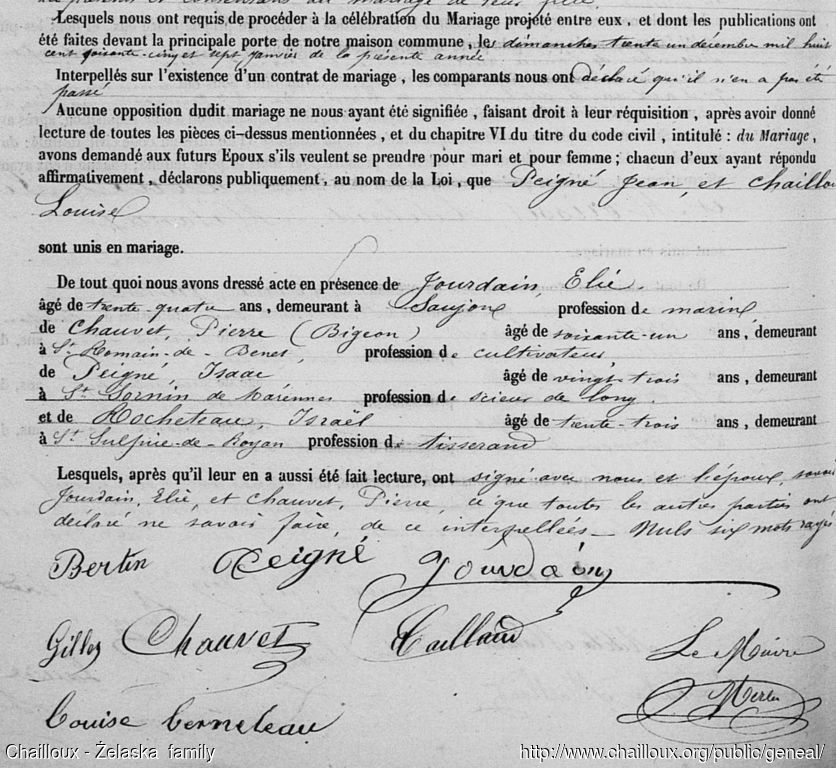 consentans du mariage de leur fille.
Lesquels nous ont requis de procéder à la célébration du Mariage projeté entre eux, et dont les publications ont
été faites devant la principale porte de notre maison commune, les dimanches trente un décembre mil huit
cent soixante-cinq et sept janvier de la présente année
Interpellés sur l'existence d'un contrat de mariage, les comparants nous ont déclaré qu'il n'en a pas été
passé
Aucune opposition dudit mariage ne nous ayant été signifiée, faisant droit à leur réquisition, après avoir donné
lecture de toutes les pièces ci-dessus mentionnées, et du chapitre VI du titre du code civil, intitulé : du Mariage,
avons demandé aux futurs Epoux s'ils veulent se prendre pour mari et pour femme; chacun d'eux ayant répondu
affirmativement, déclarons publiquement, au nom de la Loi, que Peigné Jean, et Chaillou
Louise
sont unis en mariage.
De tout quoi nous avons dressé acte en présence de Jourdain, Elie.
âgé de trente-quatre ans, demeurant à Saujon profession de marin,
de Chauvet, Pierre (Bigeon) âgé de soixante-un ans, demeurant
à St Romain-de-Benet, profession de cultivateur,
de Peigné, Isaac âgé de vingt-trois ans, demeurant
à St Sornin de Marennes profession de scieur de long.
et de Rocheteau, Israël âgé de trente-trois ans, demeurant
à St Sulpice-de-Royan profession de tisserand
Lesquels, après qu'il leur en a aussi été fait lecture, ont signé avec nous et l'époux, savoir
Jourdain, Elie, et Chauvet, Pierre, ce que toutes les autres parties ont
déclaré ne savoir faire, de ce interpellées — Nuls six mots rayés
Bertin Peigné Jourdain
Gilles Chauvet Caillaud Le Maire
Louise Corneteau Merle
Chailloux - Żelaska family http://www.chailloux.org/public/geneal/